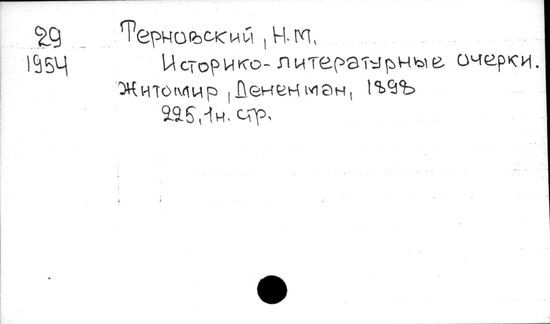 29 Терновский, Н.М.
1954 Историко-литературные очерки.
Житомир, Дененман, 1898
225, 1н. стр.